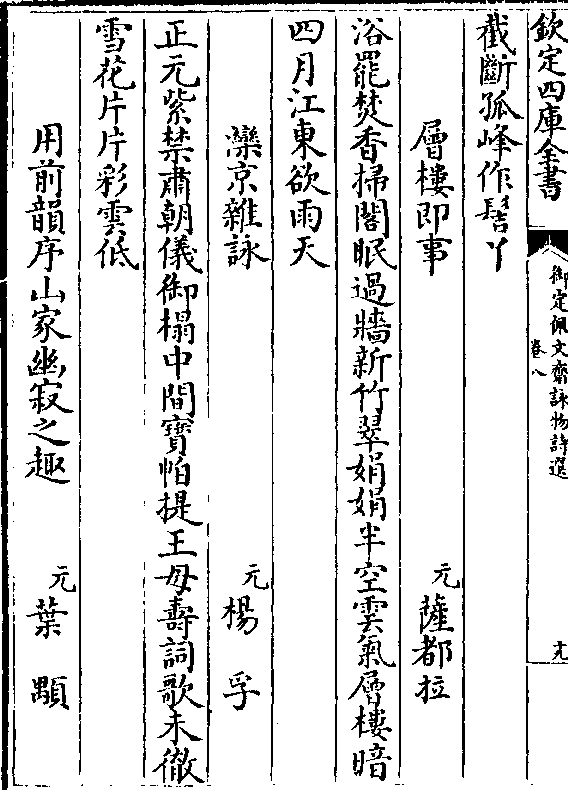 欽定四庫全書
御定佩文齋詠物詩選
卷八
九
截斷孤峰作髻丫
層樓即事
元薩都拉
浴罷焚香掃閣眠過牆新竹翠娟娟半空雲氣層樓暗
四月江東欲雨天
灤京雜詠
元楊孚
正元紫禁肅朝儀御榻中間寶帕提王母壽詞歌未徹
雪花片片彩雲低
用前韻序山家幽寂之趣
元葉顒